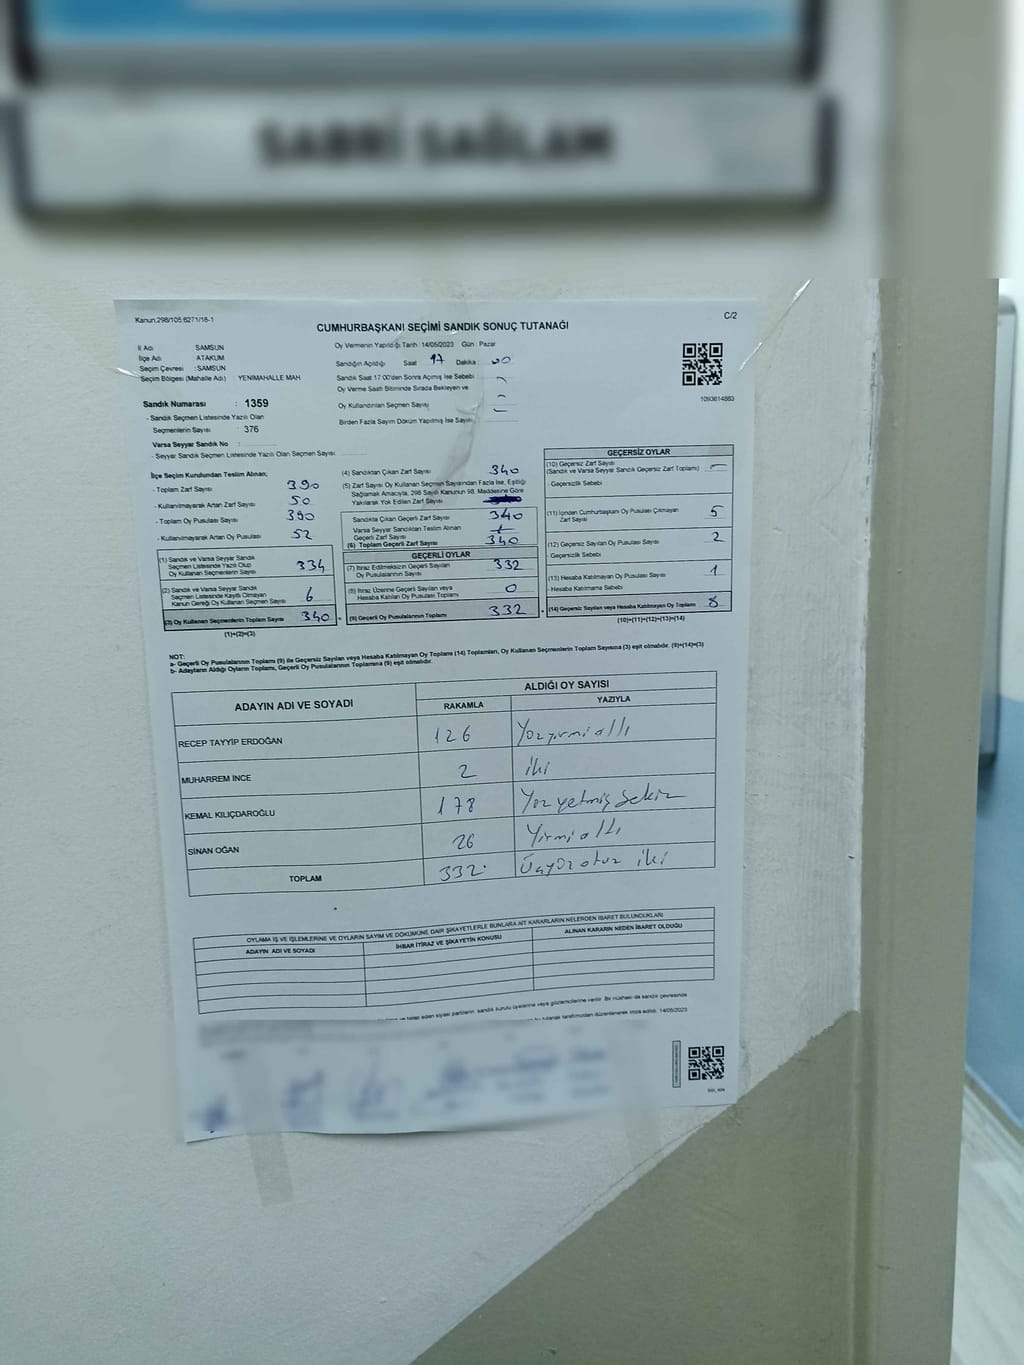 SABRİ SAĞLAM
Kanun:298/105,6271/18-1
C/2
CUMHURBAŞKANI SEÇİMİ SANDIK SONUÇ TUTANAĞI
İl Adı SAMSUN
İlçe Adı ATAKUM
Seçim Çevresi : SAMSUN
Seçim Bölgesi (Mahalle Adı) : YENİMAHALLE MAH.
Sandık Numarası : 1359
- Sandık Seçmen Listesinde Yazılı Olan
Seçmenlerin Sayısı : 376
Varsa Seyyar Sandık No :
- Seyyar Sandık Seçmen Listesinde Yazılı Olan Seçmen Sayısı
Oy Vermenin Yapıldığı Tarih : 14/05/2023 Gün : Pazar
Sandığın Açıldığı Saat 17 Dakika : 00
Sandık Saat 17:00'den Sonra Açılmış İse Sebebi
Oy Verme Saati Bitiminde Sırada Bekleyen ve
Oy Kullandırılan Seçmen Sayısı
Birden Fazla Sayım Döküm Yapılmış İse Sayısı
1093614883
İlçe Seçim Kurulundan Teslim Alınan;
- Toplam Zarf Sayısı 390
- Kullanılmayarak Artan Zarf Sayısı 50
- Toplam Oy Pusulası Sayısı 390
- Kullanılmayarak Artan Oy Pusulası 52
(1) Sandık ve Varsa Seyyar Sandık
Seçmen Listesinde Yazılı Olup
Oy Kullanan Seçmenlerin Sayısı 334
(2) Sandık ve Varsa Seyyar Sandık
Seçmen Listesinde Kayıtlı Olmayan
Kanun Gereği Oy Kullanan Seçmen Sayısı 6
(3) Oy Kullanan Seçmenlerin Toplam Sayısı 340
(1)+(2)=(3)
(4) Sandıktan Çıkan Zarf Sayısı 340
(5) Zarf Sayısı Oy Kullanan Seçmen Sayısından Fazla İse, Eşitliği
Sağlamak Amacıyla, 298 Sayılı Kanunun 98. Maddesine Göre
Yakılarak Yok Edilen Zarf Sayısı
Sandıkta Çıkan Geçerli Zarf Sayısı 340
Varsa Seyyar Sandıktan Teslim Alınan
Geçerli Zarf Sayısı
(6) Toplam Geçerli Zarf Sayısı 340
GEÇERLİ OYLAR
(7) İtiraz Edilmeksizin Geçerli Sayılan
Oy Pusulalarının Sayısı 332
(8) İtiraz Üzerine Geçerli Sayılan veya
Hesaba Katılan Oy Pusulası Toplamı 0
(9) Geçerli Oy Pusulalarının Toplamı 332
GEÇERSİZ OYLAR
(10) Geçersiz Zarf Sayısı
(Sandık ve Varsa Seyyar Sandık Geçersiz Zarf Toplamı)
- Geçersizlik Sebebi
(11) İçinden Cumhurbaşkanı Oy Pusulası Çıkmayan
Zarf Sayısı 5
(12) Geçersiz Sayılan Oy Pusulası Sayısı 2
- Geçersizlik Sebebi
(13) Hesaba Katılmayan Oy Pusulası Sayısı 1
- Hesaba Katılmama Sebebi
(14) Geçersiz Sayılan veya Hesaba Katılmayan Oy Toplamı 8
(10)+(11)+(12)+(13)=(14)
NOT:
a- Geçerli Oy Pusulalarının Toplamı (9) ile Geçersiz Sayılan veya Hesaba Katılmayan Oy Toplamı (14) Toplamları, Oy Kullanan Seçmenlerin Toplam Sayısına (3) eşit olmalıdır. (9)+(14)=(3)
b- Adayların Aldığı Oyların Toplamı, Geçerli Oy Pusulalarının Toplamına (9) eşit olmalıdır.
ADAYIN ADI VE SOYADI ALDIĞI OY SAYISI
RAKAMLA YAZIYLA
RECEP TAYYİP ERDOĞAN 126 Yüzyirmi altı
MUHARREM İNCE 2 iki
KEMAL KILIÇDAROĞLU 178 Yüz yetmiş sekiz
SİNAN OĞAN 26 Yirmi altı
TOPLAM 332 Üçyüz otuz iki
OYLAMA İŞ VE İŞLEMLERİNE VE OYLARIN SAYIM VE DÖKÜMÜNE DAİR ŞİKAYETLERLE BUNLARA AİT KARARLARIN NELERDEN İBARET BULUNDUKLARI
ADAYIN ADI VE SOYADI İHBAR İTİRAZ VE ŞİKAYETİN KONUSU ALINAN KARARIN NEDEN İBARET OLDUĞU
talep eden siyasi partilerin sandık kurulu üyelerine veya gözlemcilerine verilir. Bir nüshası da sandık çevresinde
bu tutanak tarafımızdan düzenlenerek imza edildi. 14/05/2023